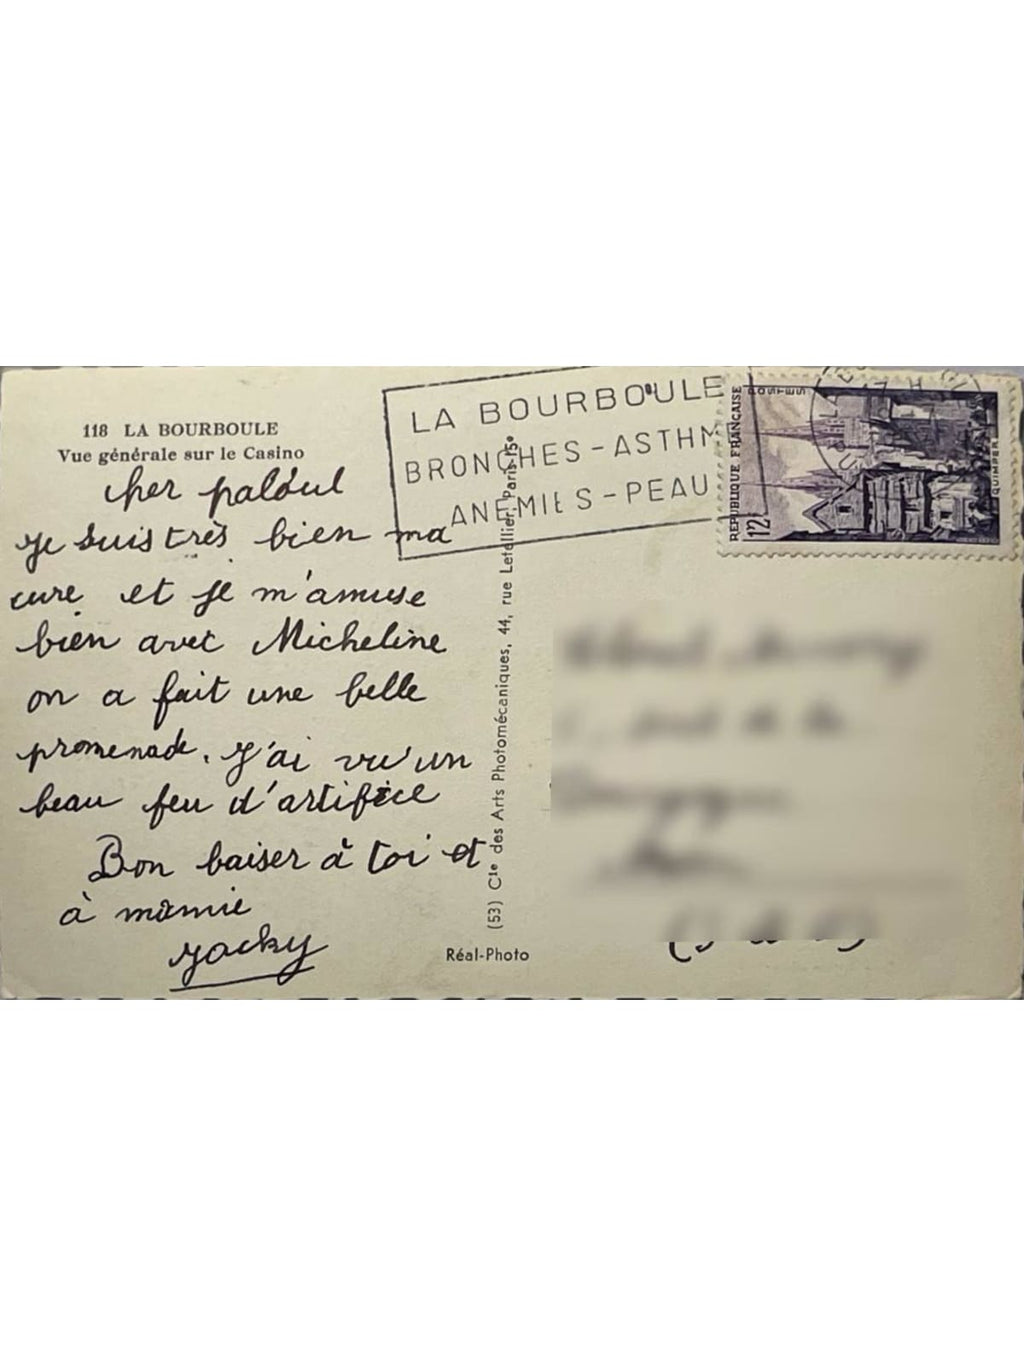 118 LA BOURBOULE
Vue générale sur le Casino
cher paloul
je suis très bien ma
cure et je m'amuse
bien avec Micheline
on a fait une belle
promenade. J'ai vu un
beau feu d'artifice
Bon baiser à toi et
à mamie
Jacky
(53) Cie des Arts Photomécaniques, 44, rue Letellier, Paris-15e
Réal-Photo
LA BOURBOULE
BRONCHES-ASTHM
ANEMIES-PEAU
REPUBLIQUE FRANÇAISE
POSTES
12F
QUIMPER